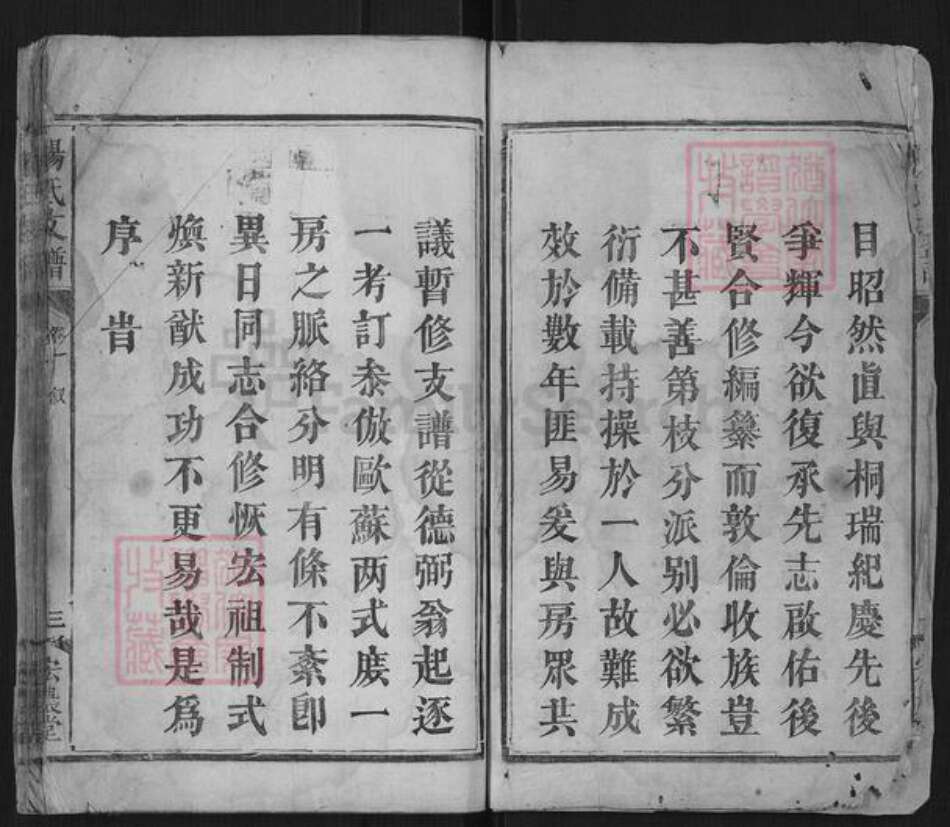 目昭然直與桐瑞紀慶先後
爭輝今欲復承先志啟佑後
賢合修編纂而敦倫收族豈
不甚善第枝分派別必欲繁
衍備載持操於一人故難成
效於數年匪易爰與房眾共
議暫修支譜從德弼翁起逐
一考訂叅倣歐蘇两式庻一
房之脈絡分明有條不紊卽
異日同志合修恢宏祖制式
煥新猷成功不更易哉是爲
序 旹
楊氏支譜
三
FamilySearch